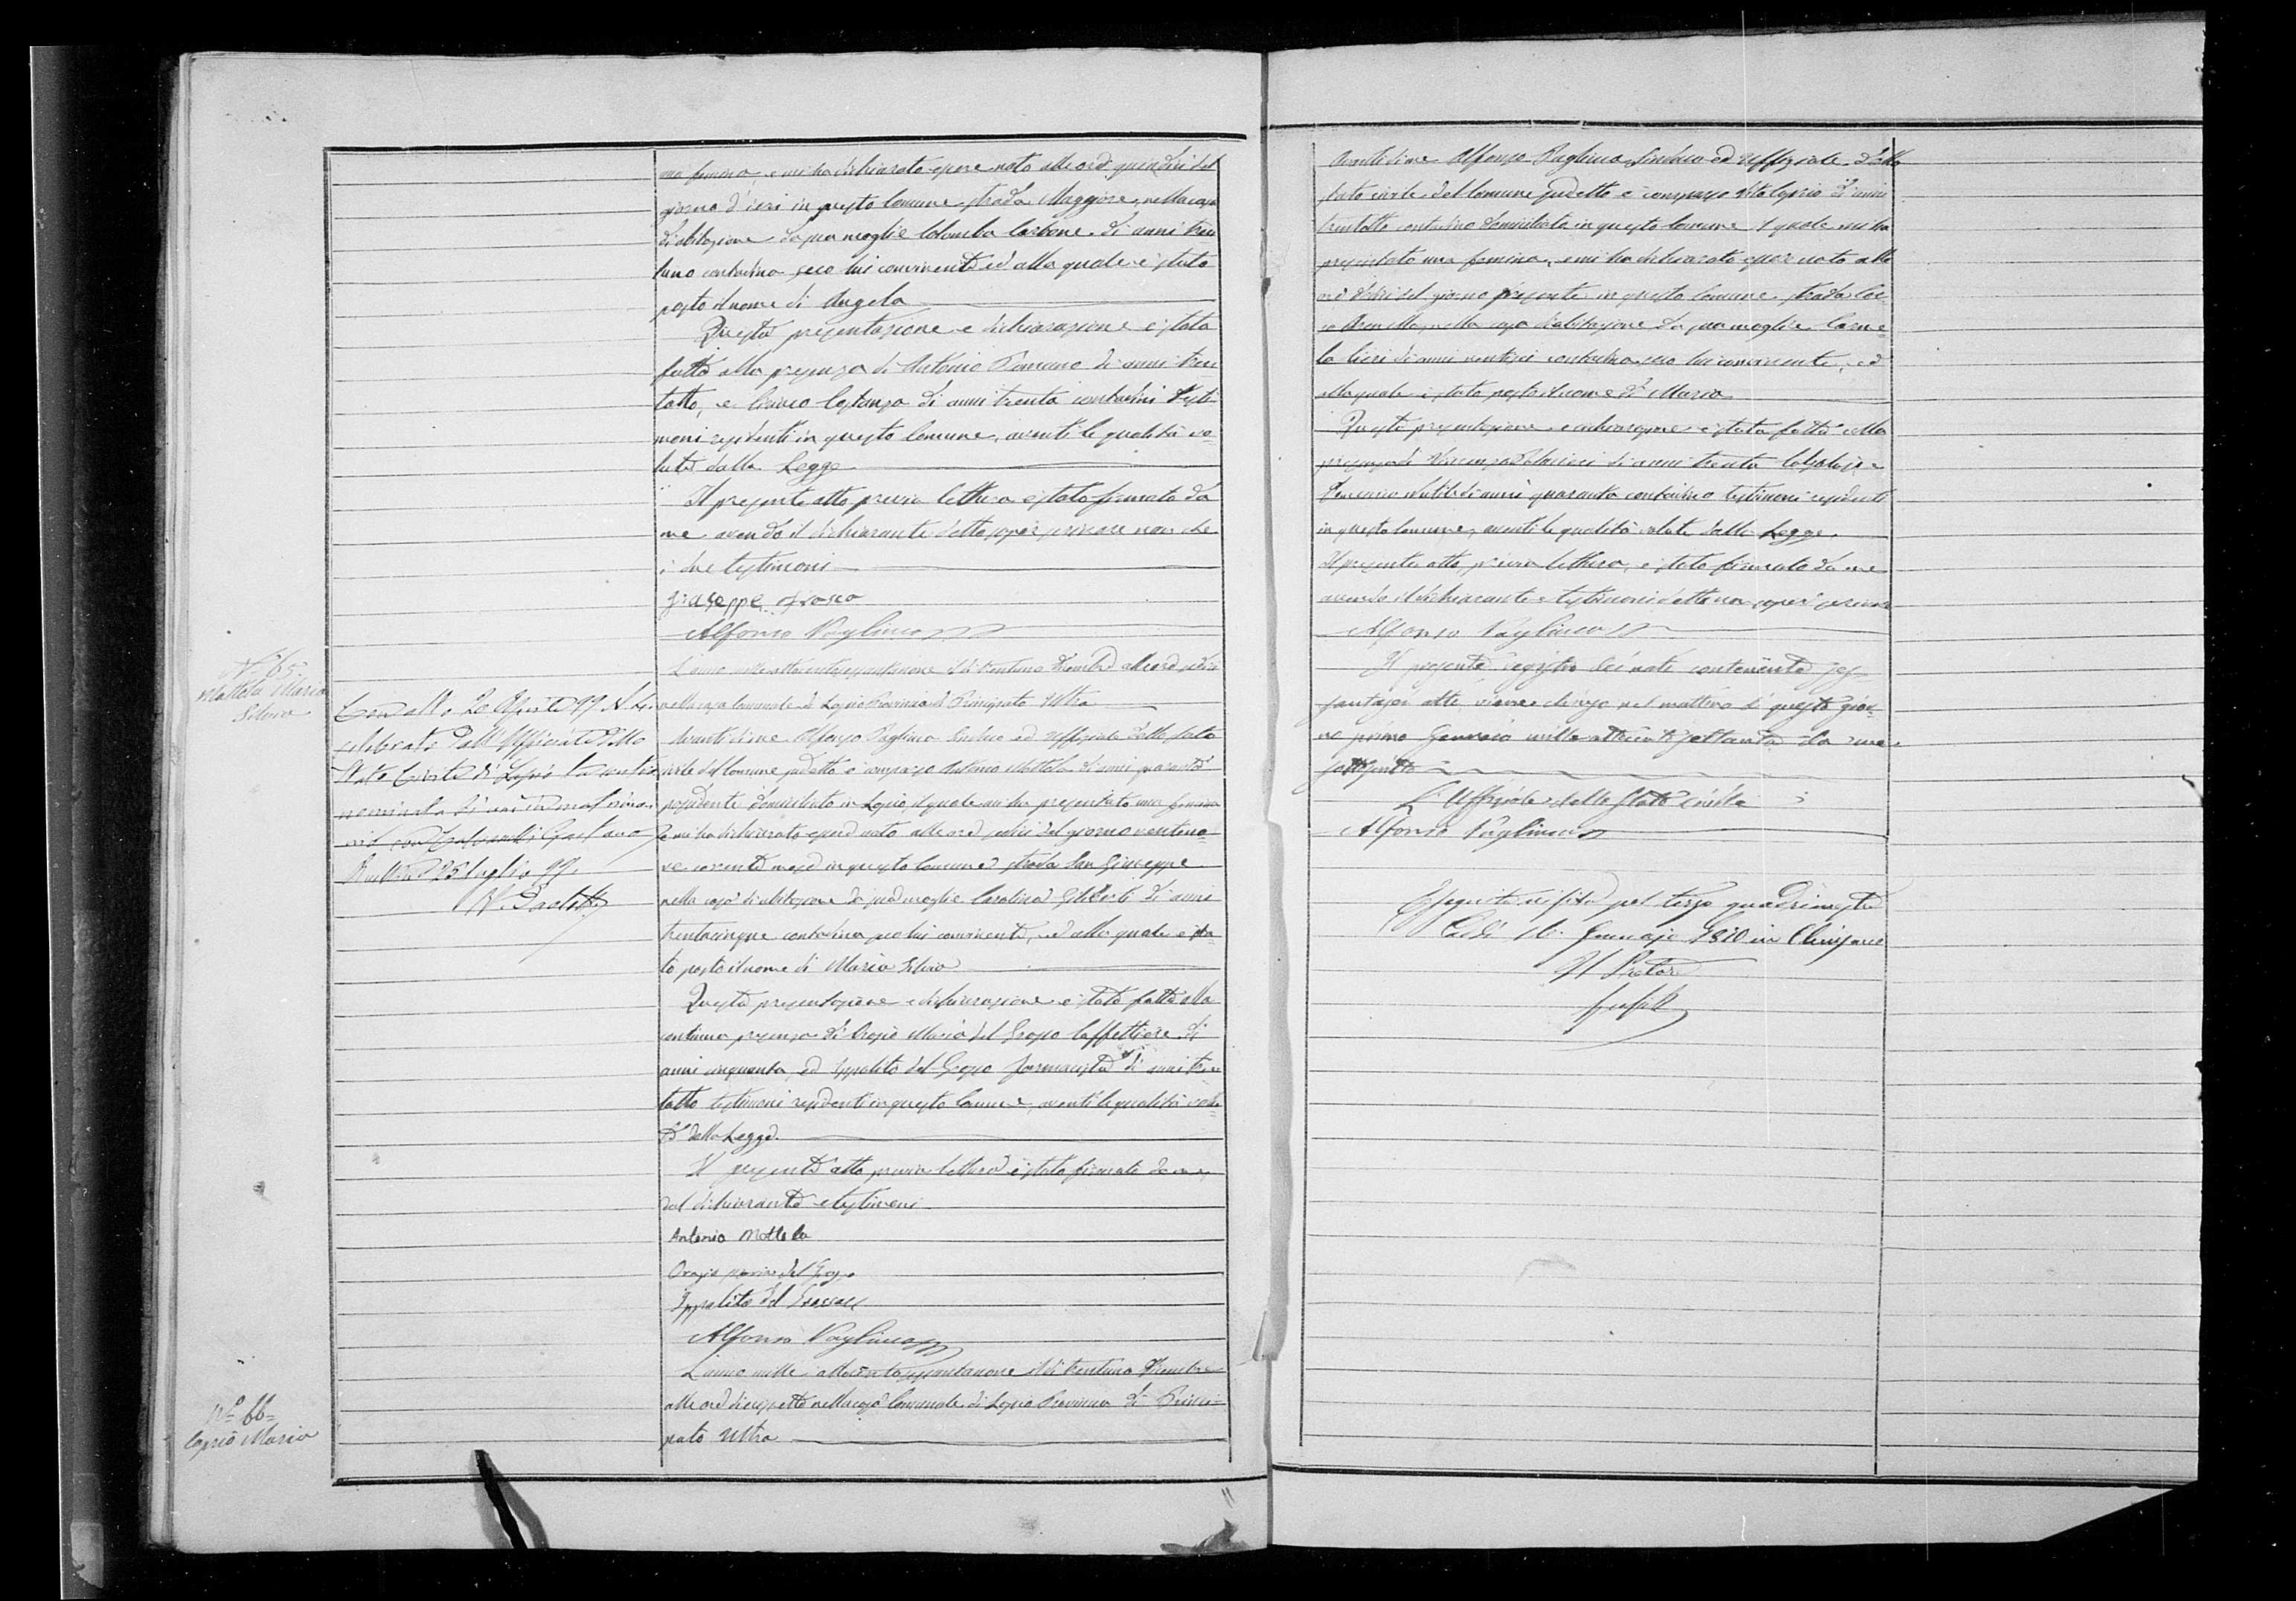 una femina, e mi ha dichiarato essere nata alle ore quindici del
giorno d'ieri in questo Comune strada Maggiore, nella casa
di abitazione da sua moglie Colomba Carbone di anni tren
tuno contadina seco lui convivente ed alla quale è stato
posto il nome di Angela
Questa presentazione e dichiarazione è stata
fatta alla presenza di Antonio Romano di anni tren
totto, e Costanzo di anni trenta contadini testi
moni residenti in questo Comune, aventi le qualità vo-
lute dalla Legge
Il presente atto previa lettura è stato firmato da
me avendo il dichiarante detto saper scrivere non che
i due testimoni
Giuseppe
Alfonso Paglinco
N° 65
Mottola Maria
Silvia
L'anno milleottocentosessantanove il dì trentuno Dicembre alle ore sedici
nella casa Comunale di Lapio Provincia di Principato Ultra
Avanti di me Alfonso Paglinco Sindaco ed Uffiziale dello Stato
civile del Comune sudetto è comparso Antonio Mottola di anni quaranta
possidente domiciliato in Lapio, il quale mi ha presentato una femina
e mi ha dichiarato essere nata alle ore sedici del giorno ventino-
ve corrente mese in questo Comune strada San Giuseppe
nella casa di abitazione da sua moglie Carolina Giliberti di anni
trentacinque contadina seco lui convivente, ed alla quale è sta-
to posto il nome di Maria Silvia
Questa presentazione e dichiarazione è stata fatta alla
continua presenza di Orazio Maria del Grosso Caffettiere di
anni cinquanta, ed Ippolito del Grosso farmacista di anni tren
totto testimoni residenti in questo Comune, aventi le qualità volu-
te dalla Legge.
Il presente atto previa lettura è stato firmato da me,
dal dichiarante e testimoni
Antonio Mottola
Orazio Maria del Grosso
Ippolito del Grosso
Alfonso Paglinco
Con atto 20 Agosto 99 N. 4.
celebrato dall'Uffiziale dello
Stato Civile di Lapio la contro
nominata si unì in matrimo-
nio con Gaetano
25 luglio 99.
N° 66
Caprio Maria
L'anno mille ottocentosessantanove il dì trentuno Dicembre
alle ore diciassette nella casa Comunale di Lapio Provincia di Princi-
pato Ultra
Avanti di me Alfonso Paglinco Sindaco ed Uffiziale dello
Stato civile del Comune sudetto è comparso Vito Caprio di anni
trentotto contadino domiciliato in questo Comune il quale mi ha
presentato una femina, e mi ha dichiarato esser nata alle
ore dodici del giorno presente in questo Comune strada
nella casa di abitazione da sua moglie Carme
la di anni ventisei contadina seco lui convivente, ed
alla quale è stato posto il nome di Maria
Questa presentazione e dichiarazione è stata fatta alla
presenza di Vincenzo di anni trenta Calzolajo e
di anni quaranta contadino testimoni residenti
in questo Comune, aventi le qualità volute dalla Legge.
Il presente atto previa lettura, è stato firmato da me
avendo il dichiarante e testimoni detto non saper scrivere
Alfonso Paglinco
Il presente registro dei nati contenente ses-
santasei atti viene chiuso nel mattino di questo gior-
no primo Gennaio mille ottocentosettanta da me
sottoscritto
L'Uffiziale dello Stato Civile
Alfonso Paglinco
Eseguita visita pel terzo quadrimestre
Oggi 16 Gennajo 1870 in Chiusano
Il Pretore